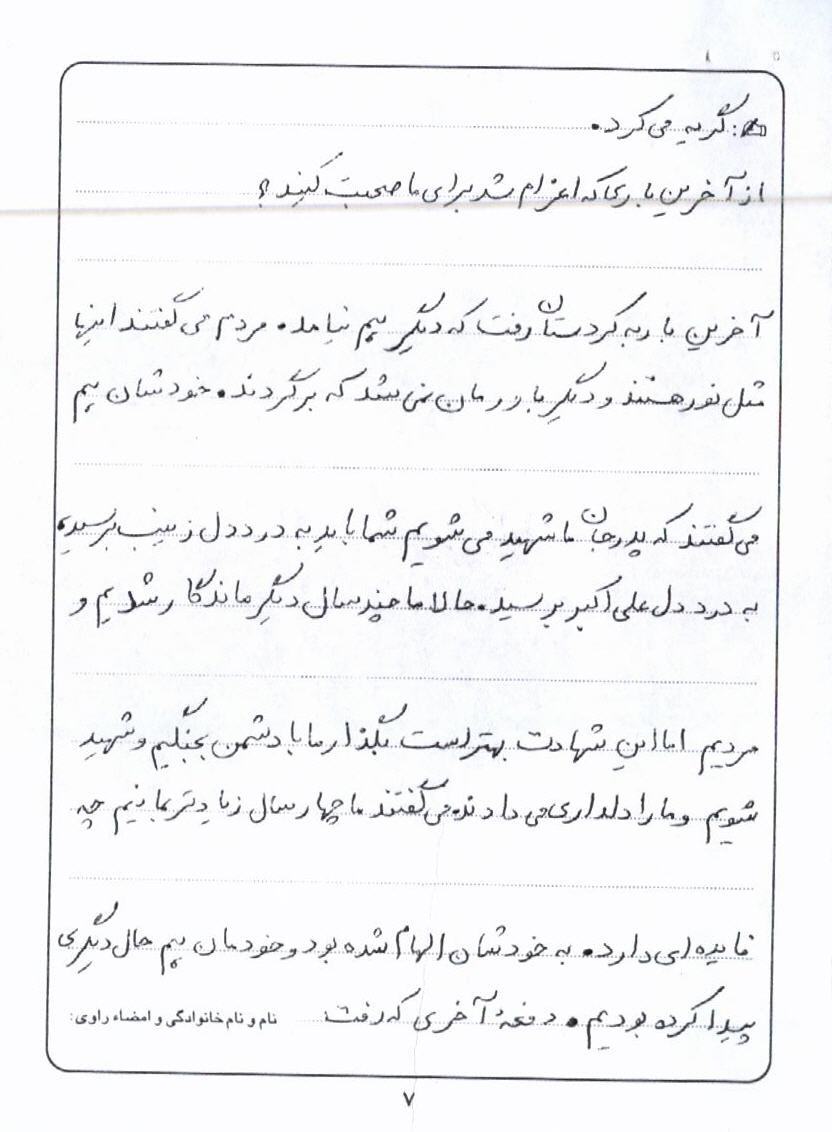 : گریه می‌کرد.
از آخرین باری که اعزام شد برای ما صحبت کنید؟
آخرین بار به کردستان رفت که دیگر هم نیامد. مردم می‌گفتند اینها
مثل نور هستند و دیگر باورمان نمی‌شد که برگردند. خودشان هم
می‌گفتند که پدرجان ما شهید می‌شویم شما باید به درد دل زینب برسید،
به درد دل علی اکبر برسید. حالا ما چند سال دیگر ماندگار شدیم و
مردیم اما این شهادت بهتر است بگذار ما با دشمن بجنگیم و شهید
شویم و ما را دلداری می‌دادند. می‌گفتند ما چهار سال زیادتر بمانیم چه
فایده‌ای دارد. به خودشان الهام شده بود و خودمان هم حال دیگری
پیدا کرده بودیم. دفعهٔ آخری که رفت
نام و نام خانوادگی و امضاء راوی:
۷